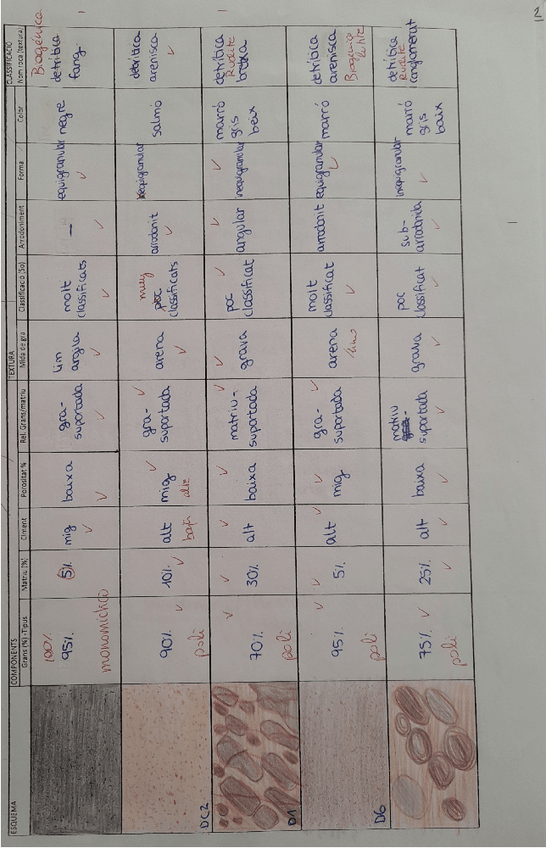 2
COMPONENTS
TEXTURA
CLASSIFICACIÓ
ESQUEMA
Grans (%) -Tipus
Matriu (%)
Ciment
Porositat %
Rel. Grans/matriu
Mida de gra
Classificació (So)
Arrodoniment
Forma
Color
Nom roca (textura)
100%
95%
monomíctica
5%
mig
baixa
gra-
suportada
lim
argila
molt
classificats
—
equigranular
negre
Biogénica
detrítica
fang
DC2
90%
poli
10%
alt
baja
mig
alta
gra-
suportada
arena
muy
poc
classificats
arrodonit
inequigranular
salmó
detrítica
arenisca
D1
70%
poli
30%
alt
baixa
matriu-
suportada
grava
poc
classificat
angular
inequigranular
marró
gris
beix
detrítica
Rudite
bretxa
D6
95%
poli
5%
alt
mig
gra-
suportada
arena
limo
molt
classificat
arrodonit
equigranular
marró
detrítica
arenisca
Biogénica
75%
poli
25%
alt
baixa
matriu
suportada
grava
poc
classificat
sub-
arrodonida
inequigranular
marró
gris
baix
detrítica
Rudite
conglomerat